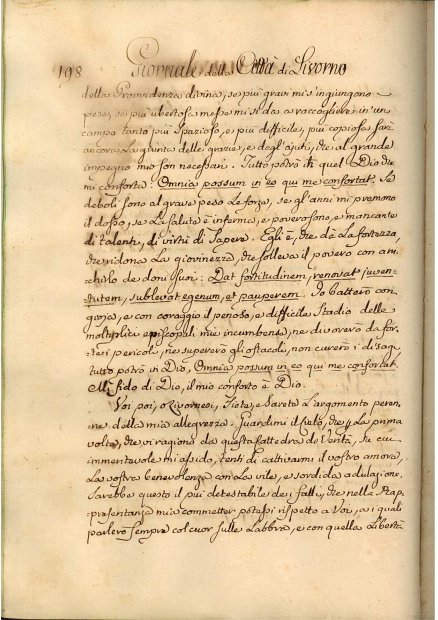 198 Giornale della Città di Livorno
della Provvidenza divina, se più gravi mi s'ingiungono
pesi, se più ubertosa messe mi si dà a raccogliere in un
campo tanto più spazioso, e più difficile, più copiosa sarà
ancora la giunta delle grazie, e degl'ajuti, che al grande
impegno mio son necessari. Tutto potrò in quel Dio che
mi conforta: Omnia possum in eo qui me confortat. Se
deboli sono al grave peso le forze, se gl'anni mi premono
il dosso, se la salute è inferma, e povero sono, e mancante
di talenti, di virtù di sapere. Egli è, che dà la fortezza,
che ridona la giovinezza, che solleva il povero con arric-
chirlo de doni suoi: Dat fortitudinem, renovat juven-
tutem, sublevat egenum, et pauperem. Io batterò con
gioja, e con coraggio il penoso, e difficile Stadio delle
moltiplici episcopali mie incumbenze, ne divorerò da for-
te i pericoli, ne supererò gli ostacoli, non curerò i disagi
tutto potrò in Dio, Omnia possum in eo qui me confortat.
Mi fido di Dio, il mio conforto è Dio.
Voi poi, o Livornesi, siete, e sarete l'argomento peren-
ne della mia allegrezza. Guardimi il Cielo, che la prima
volta, che vi ragiono da questa Cattedra de Verità, su cui
immeritevole mi assido, tenti di cattivarmi il vostro amore,
la vostra benevolenza con la vile, e sordida adulazione.
Sarebbe questo il più detestabile de i falli, che nella Rap-
presentanza mia commetter potessi rispetto a Voi, a i quali
parlerò sempre col cuor sulle labbra, e con quella libertà